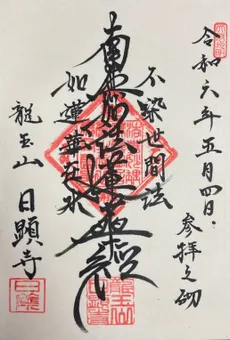 令和六年五月四日
参拝之砌
不染世間法
南無妙法蓮華経
如蓮華在水
龍王山
日顕寺